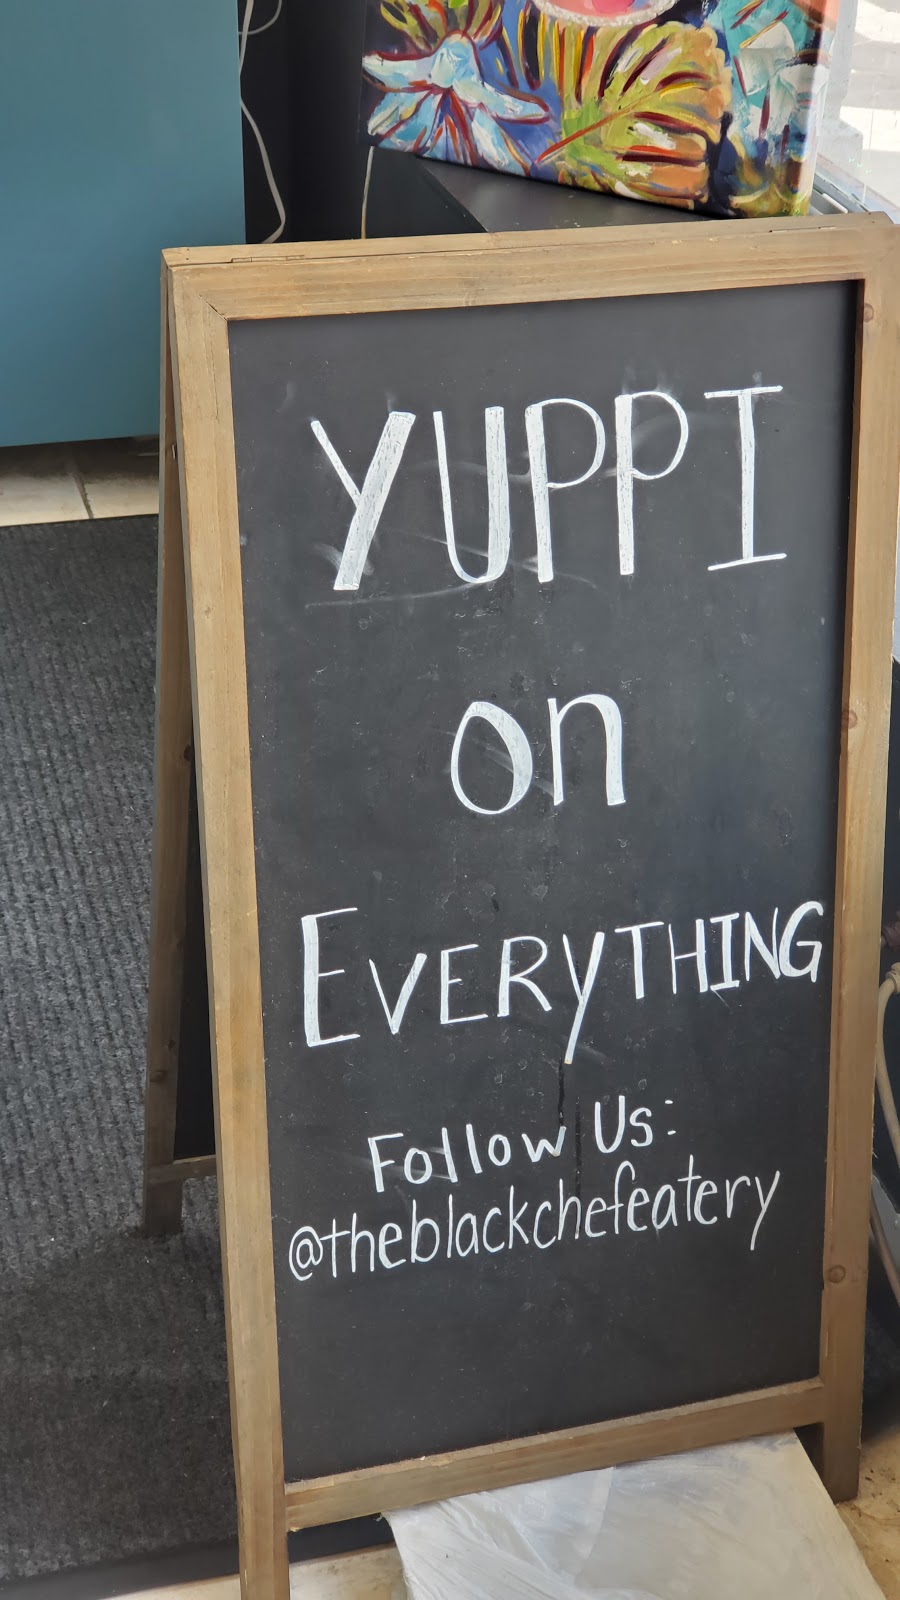 YUPPI
on
EVERYTHING
Follow Us:
@theblackchefeatery